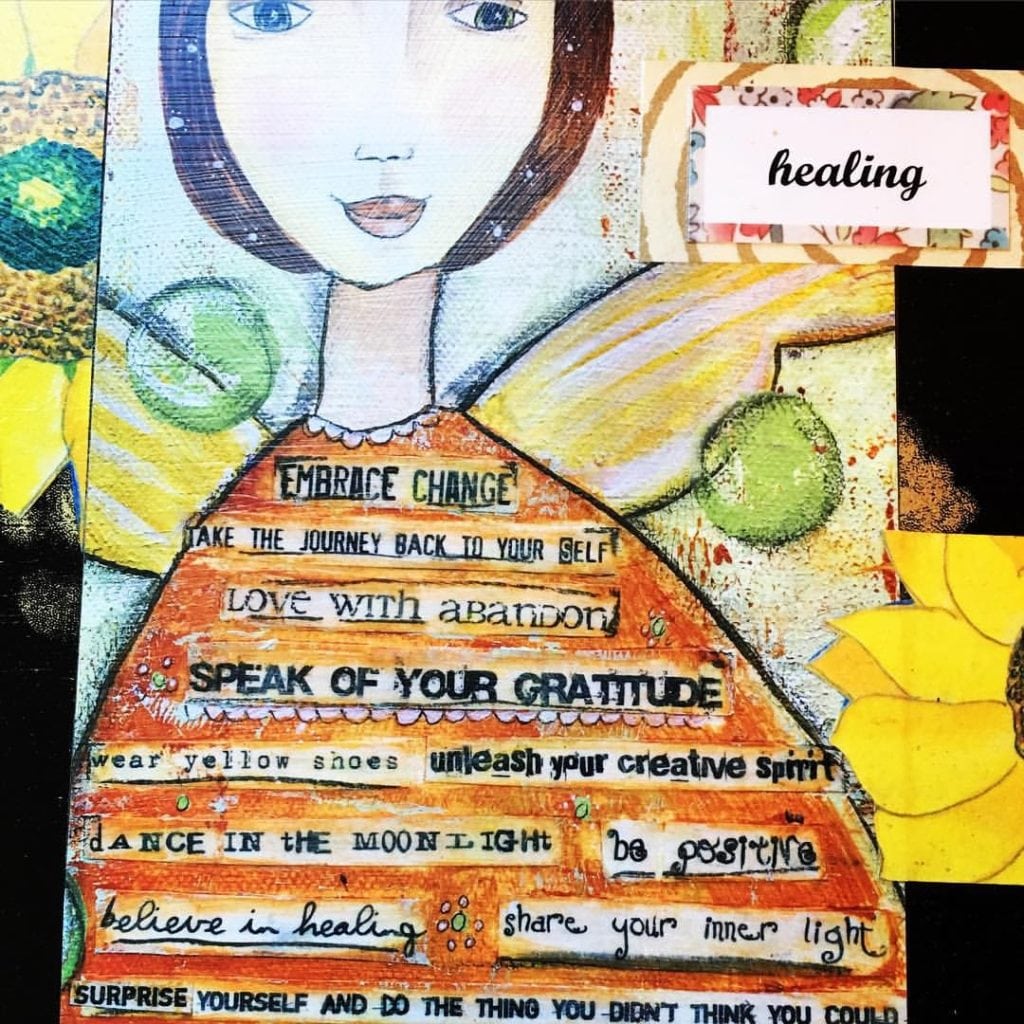 healing
EMBRACE CHANGE
TAKE THE JOURNEY BACK TO YOUR SELF
LOVE WITH ABANDON
SPEAK OF YOUR GRATITUDE
wear yellow shoes
unleash your creative spirit
dANCE IN tHE MOONLIGHt
be positive
believe in healing
share your inner light
SURPRISE YOURSELF AND DO THE THING YOU DIDN'T THINK YOU COULD